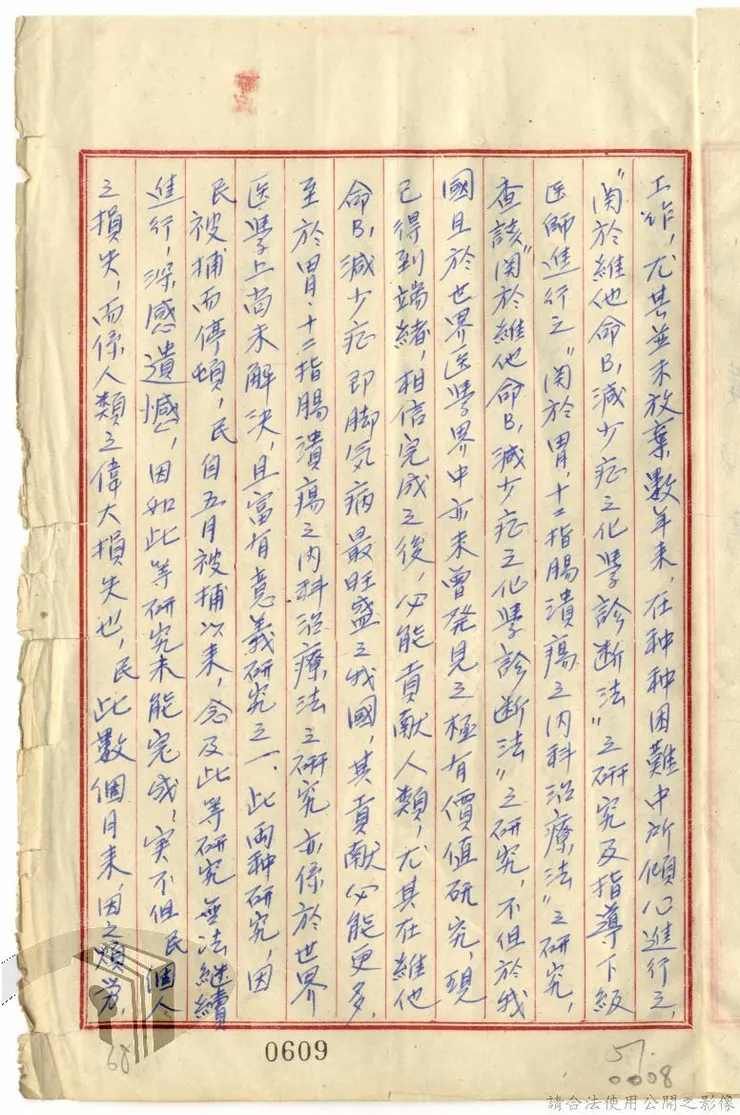 工作，尤其並未放棄數年来，在种种困難中所傾心進行之，
"関於維他命B₁減少症之化学診断法"之研究及指導下級
医師進行之"関於胃、十二指腸潰瘍之内科治療法"之研究，
查該"関於維他命B₁減少症之化学診断法"之研究，不但於我
國且於世界医学界中亦未曾発見之極有價值研究，現
已得到端緒，相信完成之後，必能貢献人類，尤其在維他
命B₁減少症即脚気病最旺盛之我國，其貢献必能更多，
至於胃、十二指腸潰瘍之内科治療法之研究亦係於世界
医学上尚未解決，且富有意義研究之一．此両种研究，因
民被捕而停頓，民自五月被捕以来，念及此等研究無法継續
進行，深感遺憾，因如此等研究未能完成，実不但民個人
之損失，而係人類之偉大損失也，民此數個月来，因之煩労，
68
0609
57.
0008
請合法使用公開之影像